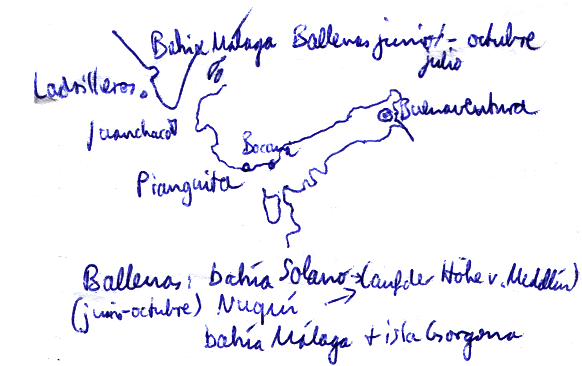 Bahia Málaga Ballenas junio/- octubre
julio
Ladrilleros
Juanchaco
Buenaventura
Bocana
Pianguita
Ballenas: bahía Solano → (auf der Höhe v. Medellín)
(junio-octubre) Nuquí →
bahía Málaga + isla Gorgona